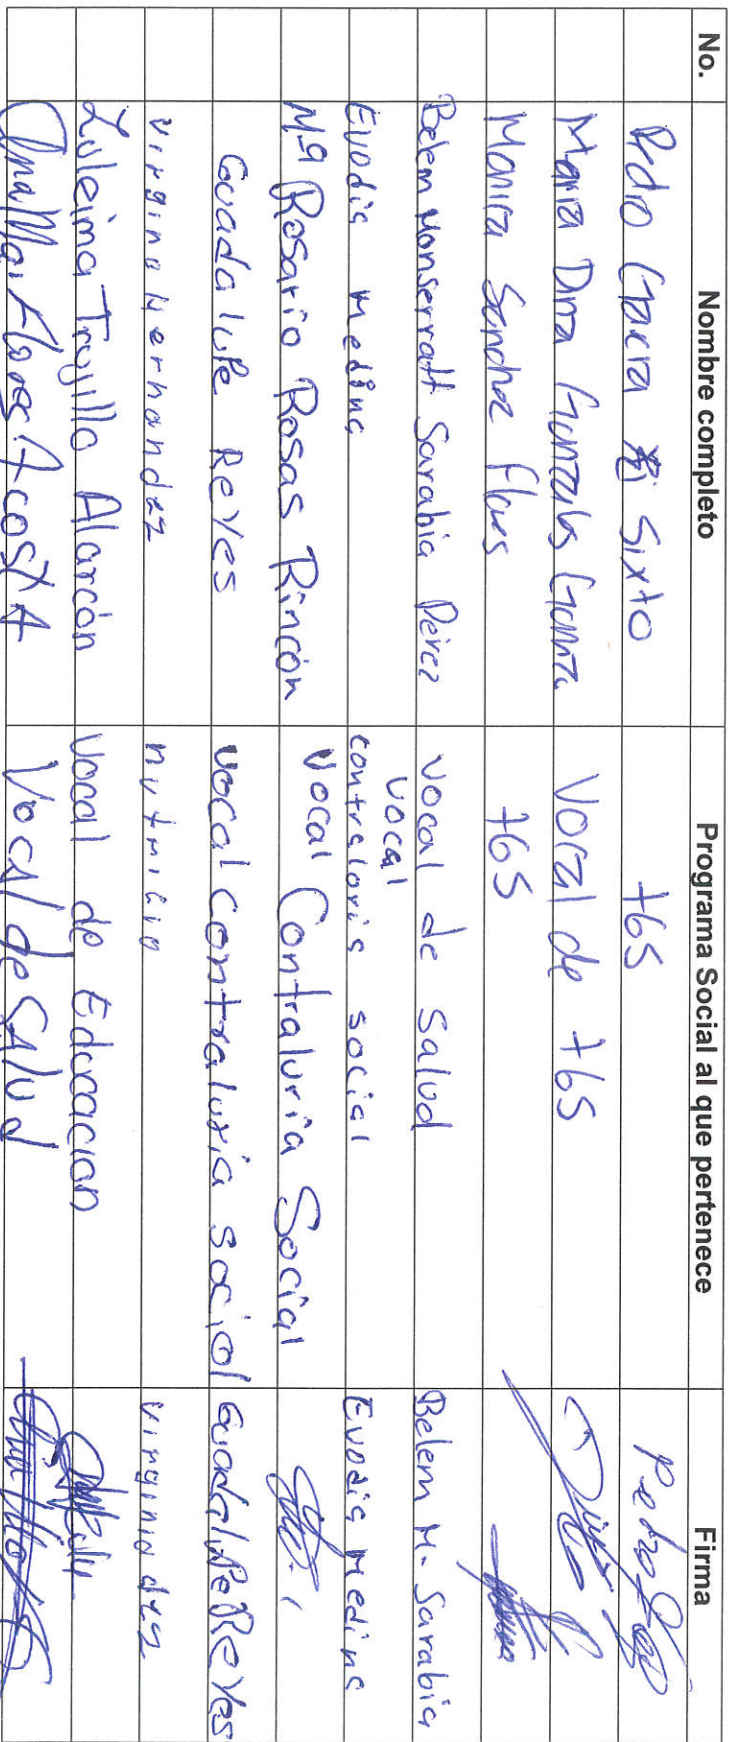 No. Nombre completo Programa Social al que pertenece Firma
Pedro Garcia Sixto +65 Pedro
Maria Dina Gonzales Garcia Vocal de +65
Monica Sanchez Flores +65
Belem Monserratt Sarabia Pérez Vocal de Salud Belem M. Sarabia
Evodia Medina Vocal contraloria social Evodia Medina
Mª Rosario Rosas Rincón Vocal Contraluria Social
Guadalupe Reyes Vocal Contraluria social Guadalupe Reyes
virginia Hernandez nutricio virginia dez
Zuleima Trujillo Alarcón Vocal de Educacion
Ana Ma. Flores Acosta Vocal de Salud